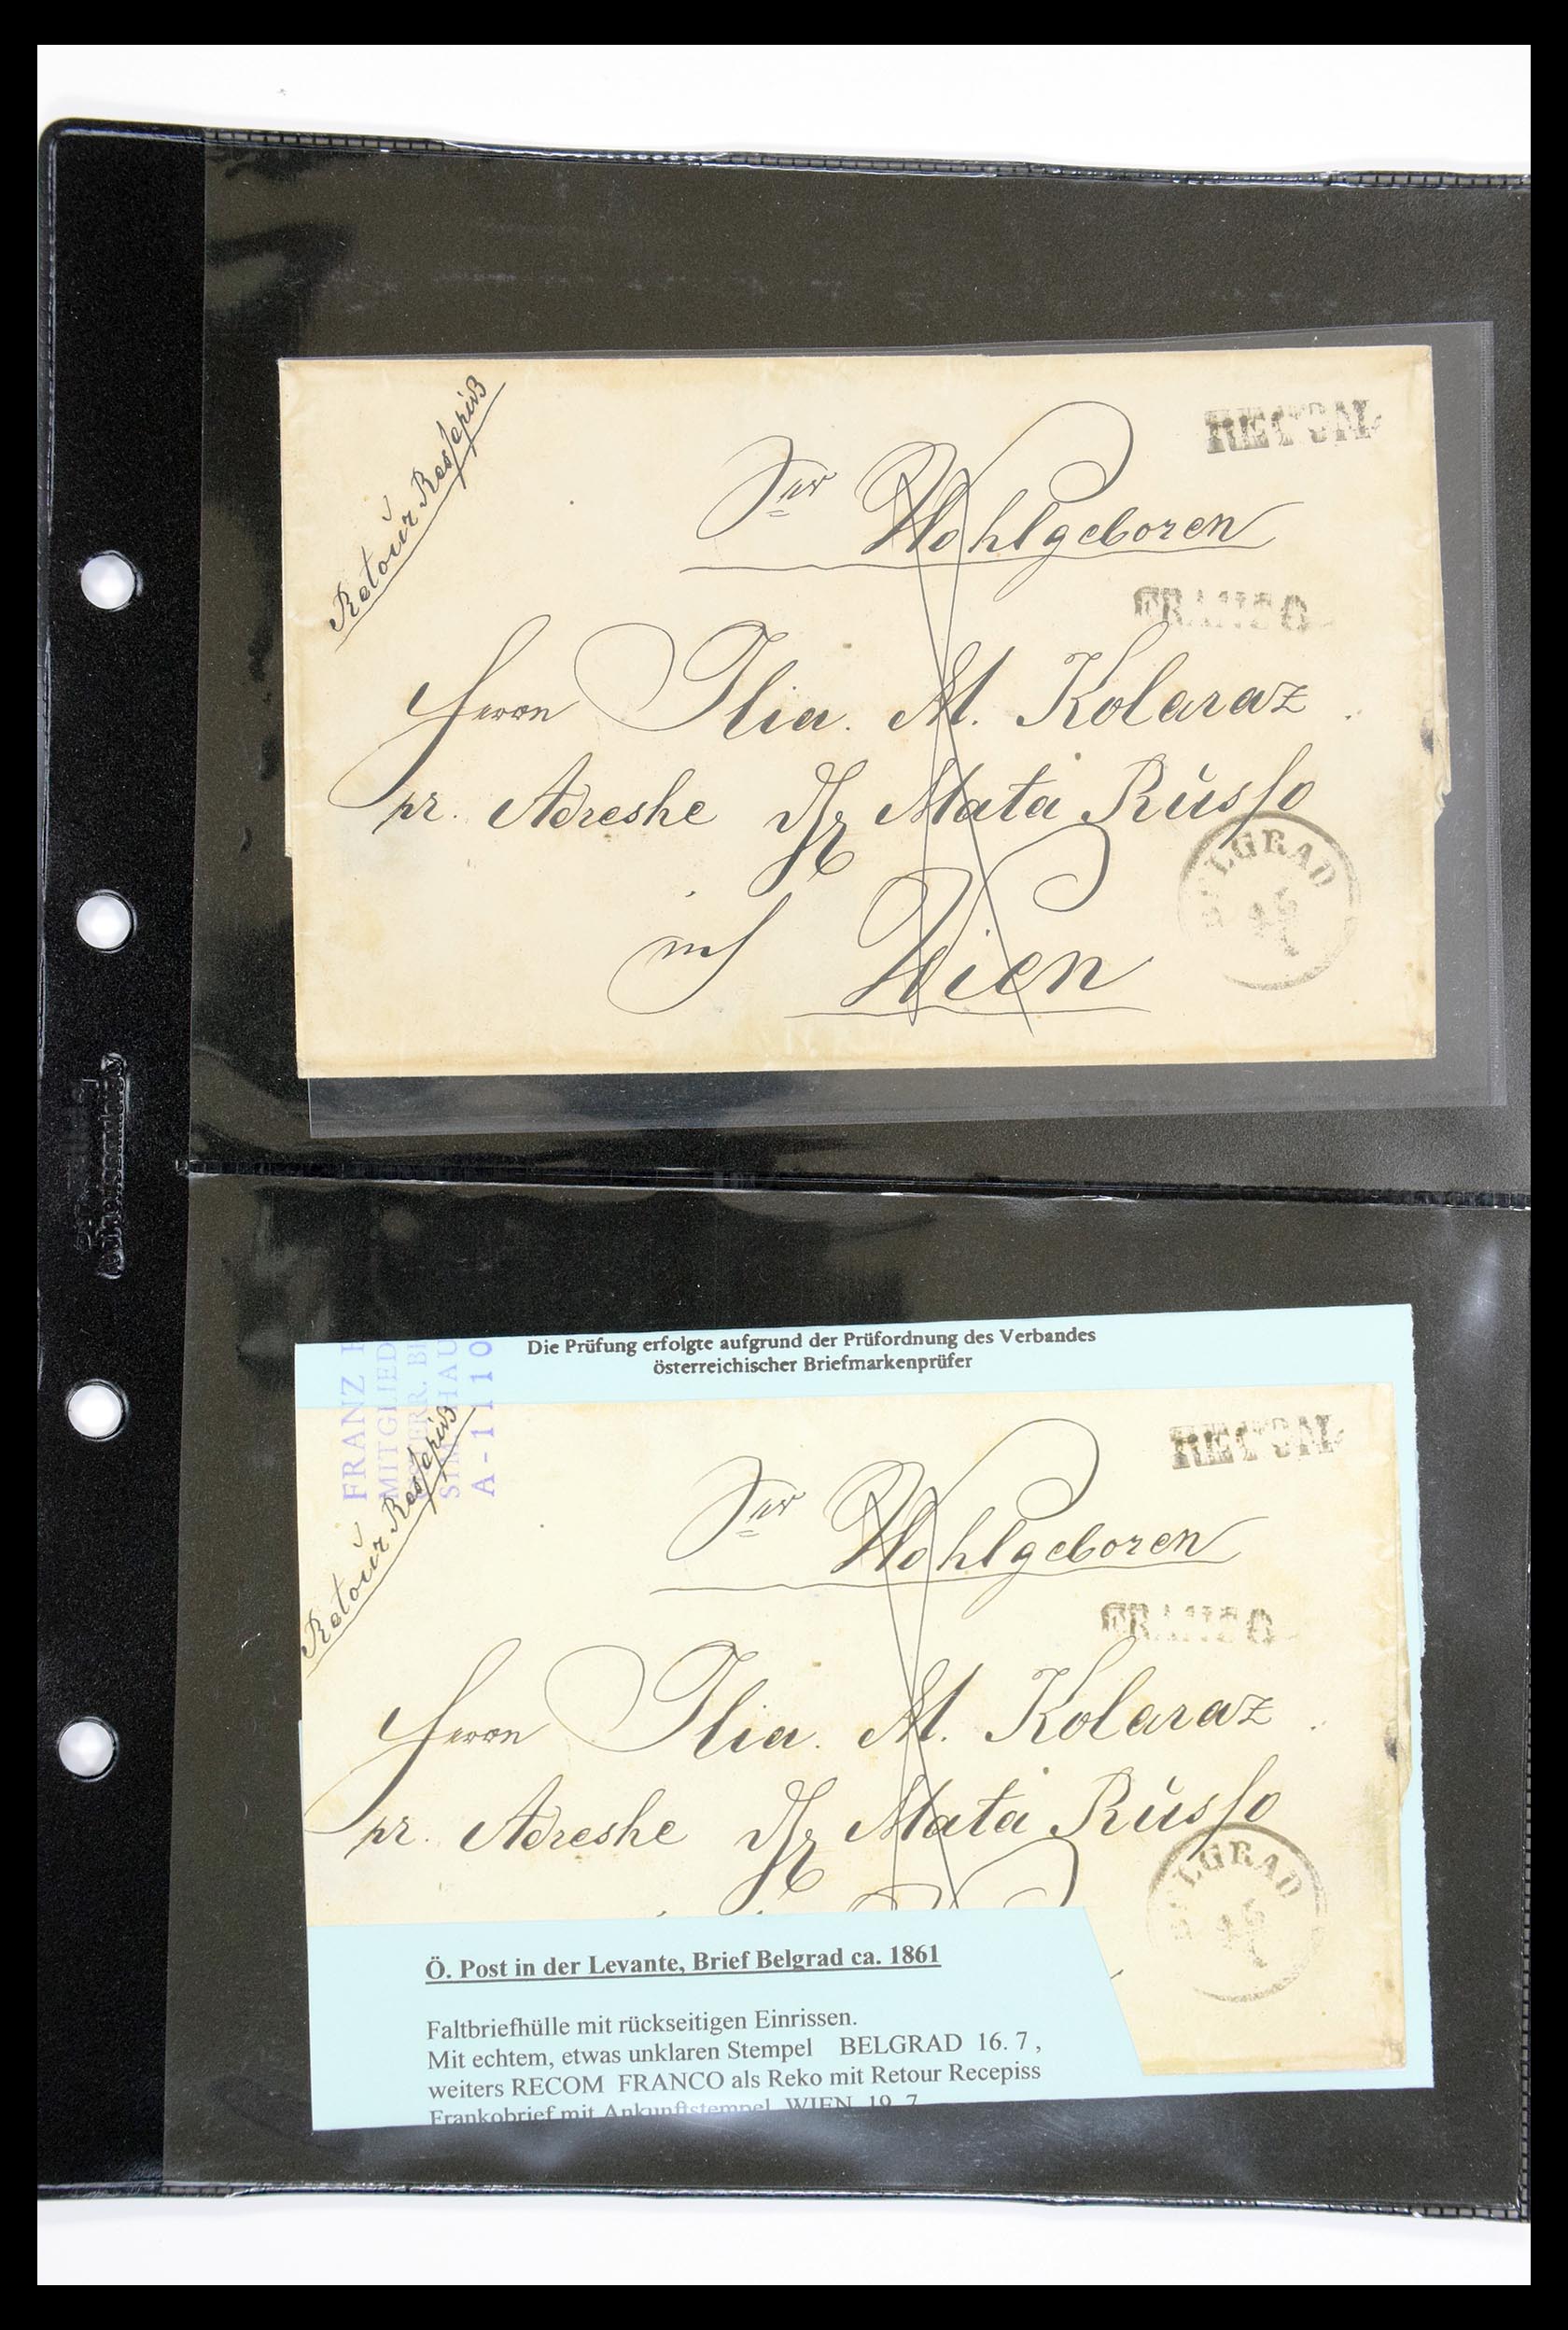 Retour Recepiss
RECOM.
Sr Wohlgeboren
FRANCO
Herrn Ilia M. Kolaraz
pr. Adreshe Mata Russo
BELGRAD
16
7
in Wien
Die Prüfung erfolgte aufgrund der Prüfordnung des Verbandes
österreichischer Briefmarkenprüfer
FRANZ
MITGLIED
A-1110
Retour Recepiss
RECOM.
Sr Wohlgeboren
FRANCO
Herrn Ilia M. Kolaraz
pr. Adreshe Mata Russo
BELGRAD
16
7
Ö. Post in der Levante, Brief Belgrad ca. 1861
Faltbriefhülle mit rückseitigen Einrissen.
Mit echtem, etwas unklaren Stempel BELGRAD 16. 7 ,
weiters RECOM FRANCO als Reko mit Retour Recepiss
Frankobrief mit Ankunftstempel WIEN 19. 7